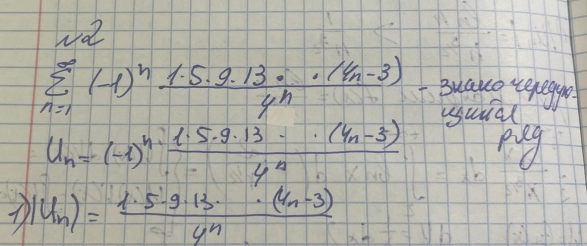 №2
∞ ∑ n=1 (-1)ⁿ 1·5·9·13· · (4n-3) / 4ⁿ - знакочередующийся ряд
Uₙ = (-1)ⁿ · 1·5·9·13· · (4n-3) / 4ⁿ
1) |Uₙ) = 1·5·9·13· · (4n-3) / 4ⁿ